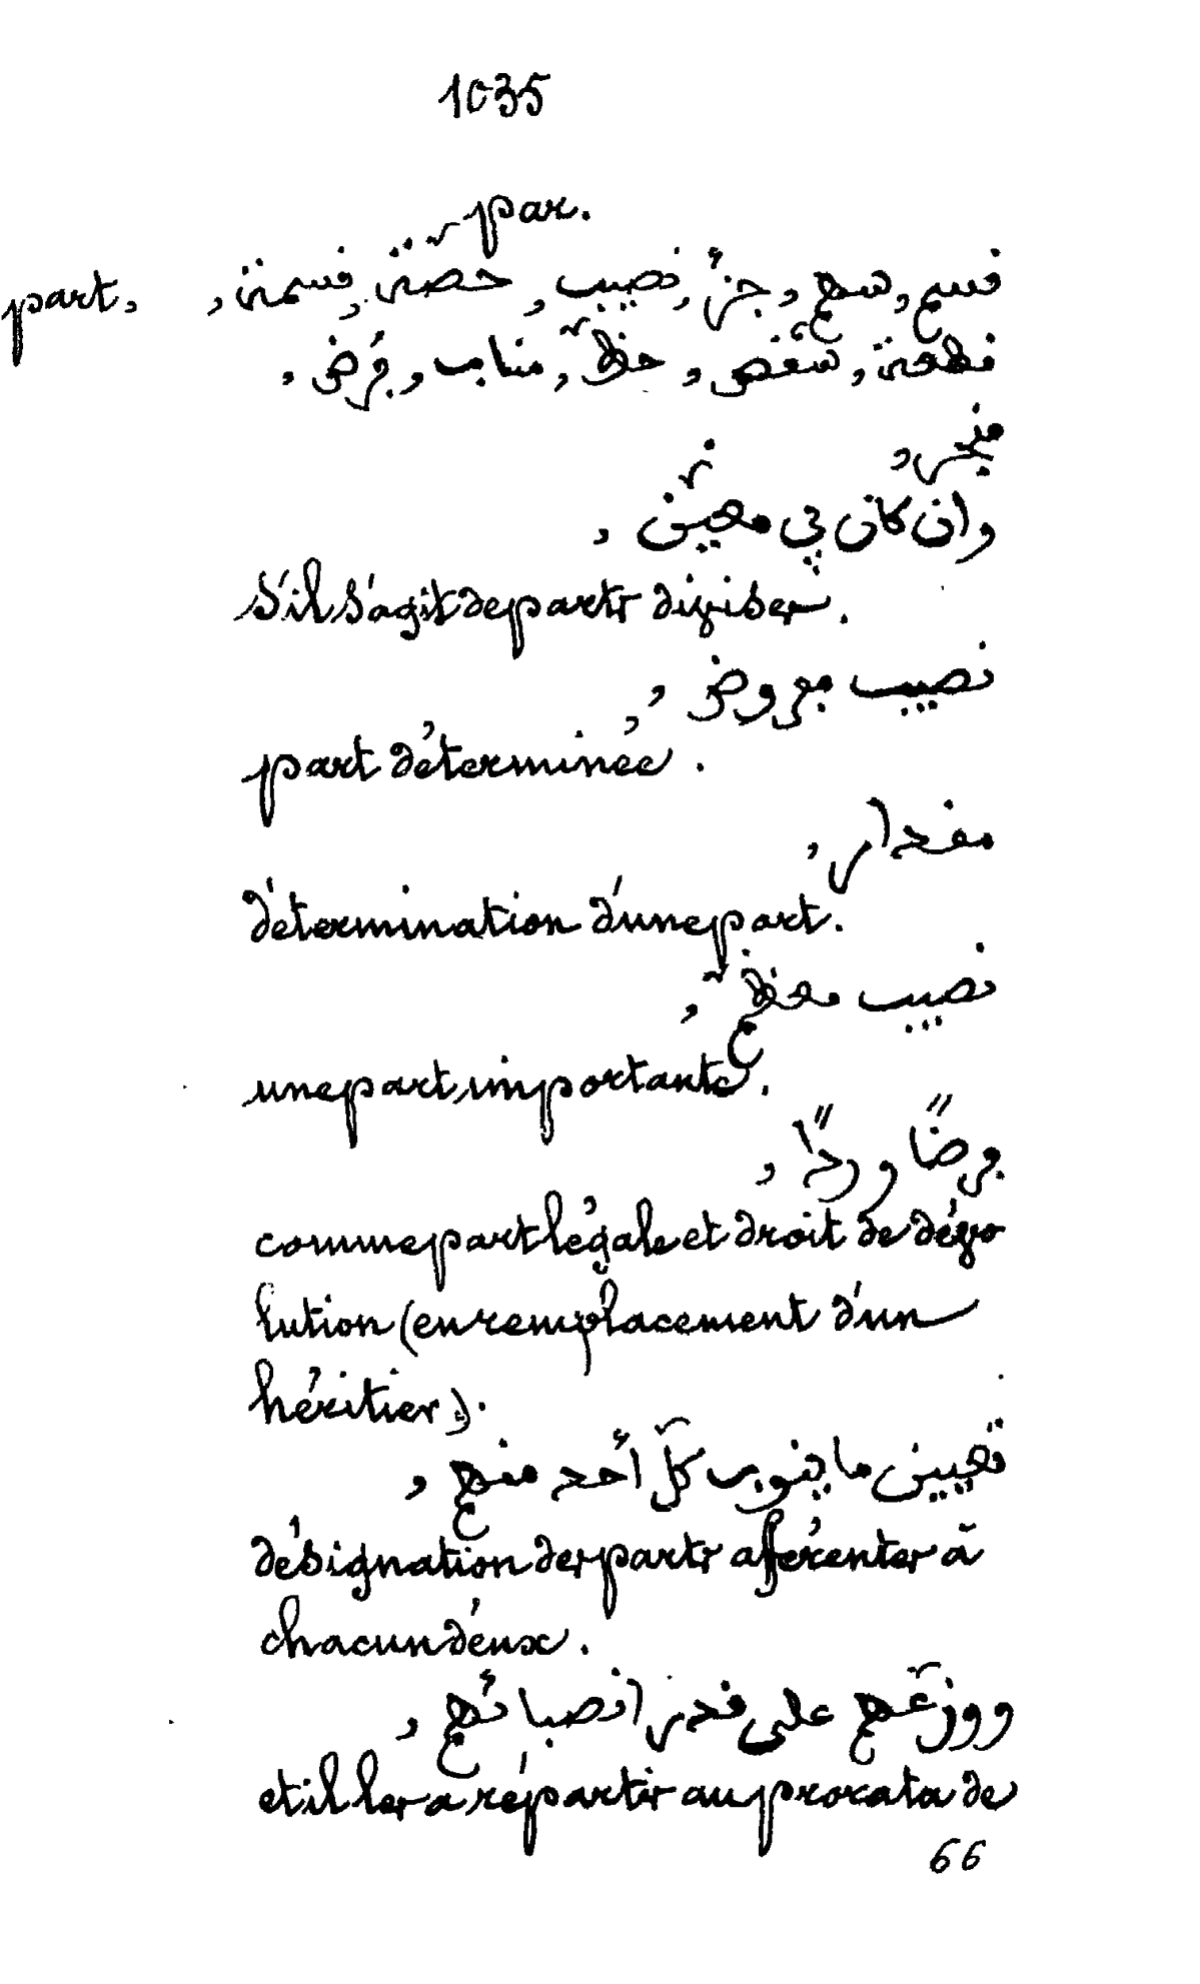 1035
par.
part, قسم, سهم, جزأ, نصيب, حصّة, قسمة,
قطعة, شقص, حظّ, مناب, فرض,
وان كان في معيّن,
s'il s'agit de parts divises.
نصيب مفروض,
part déterminée.
مقدار,
détermination d'une part.
نصيب معظم,
une part importante.
فرضًا وردًّا,
comme part légale et droit de dévo
lution (en remplacement d'un
héritier).
تعيين ما ينوب كلّ أحد منهم,
désignation des parts aférentes à
chacun d'eux.
ووزّعهم على قدر انصبائهم,
et il les a répartis au prorata de
66